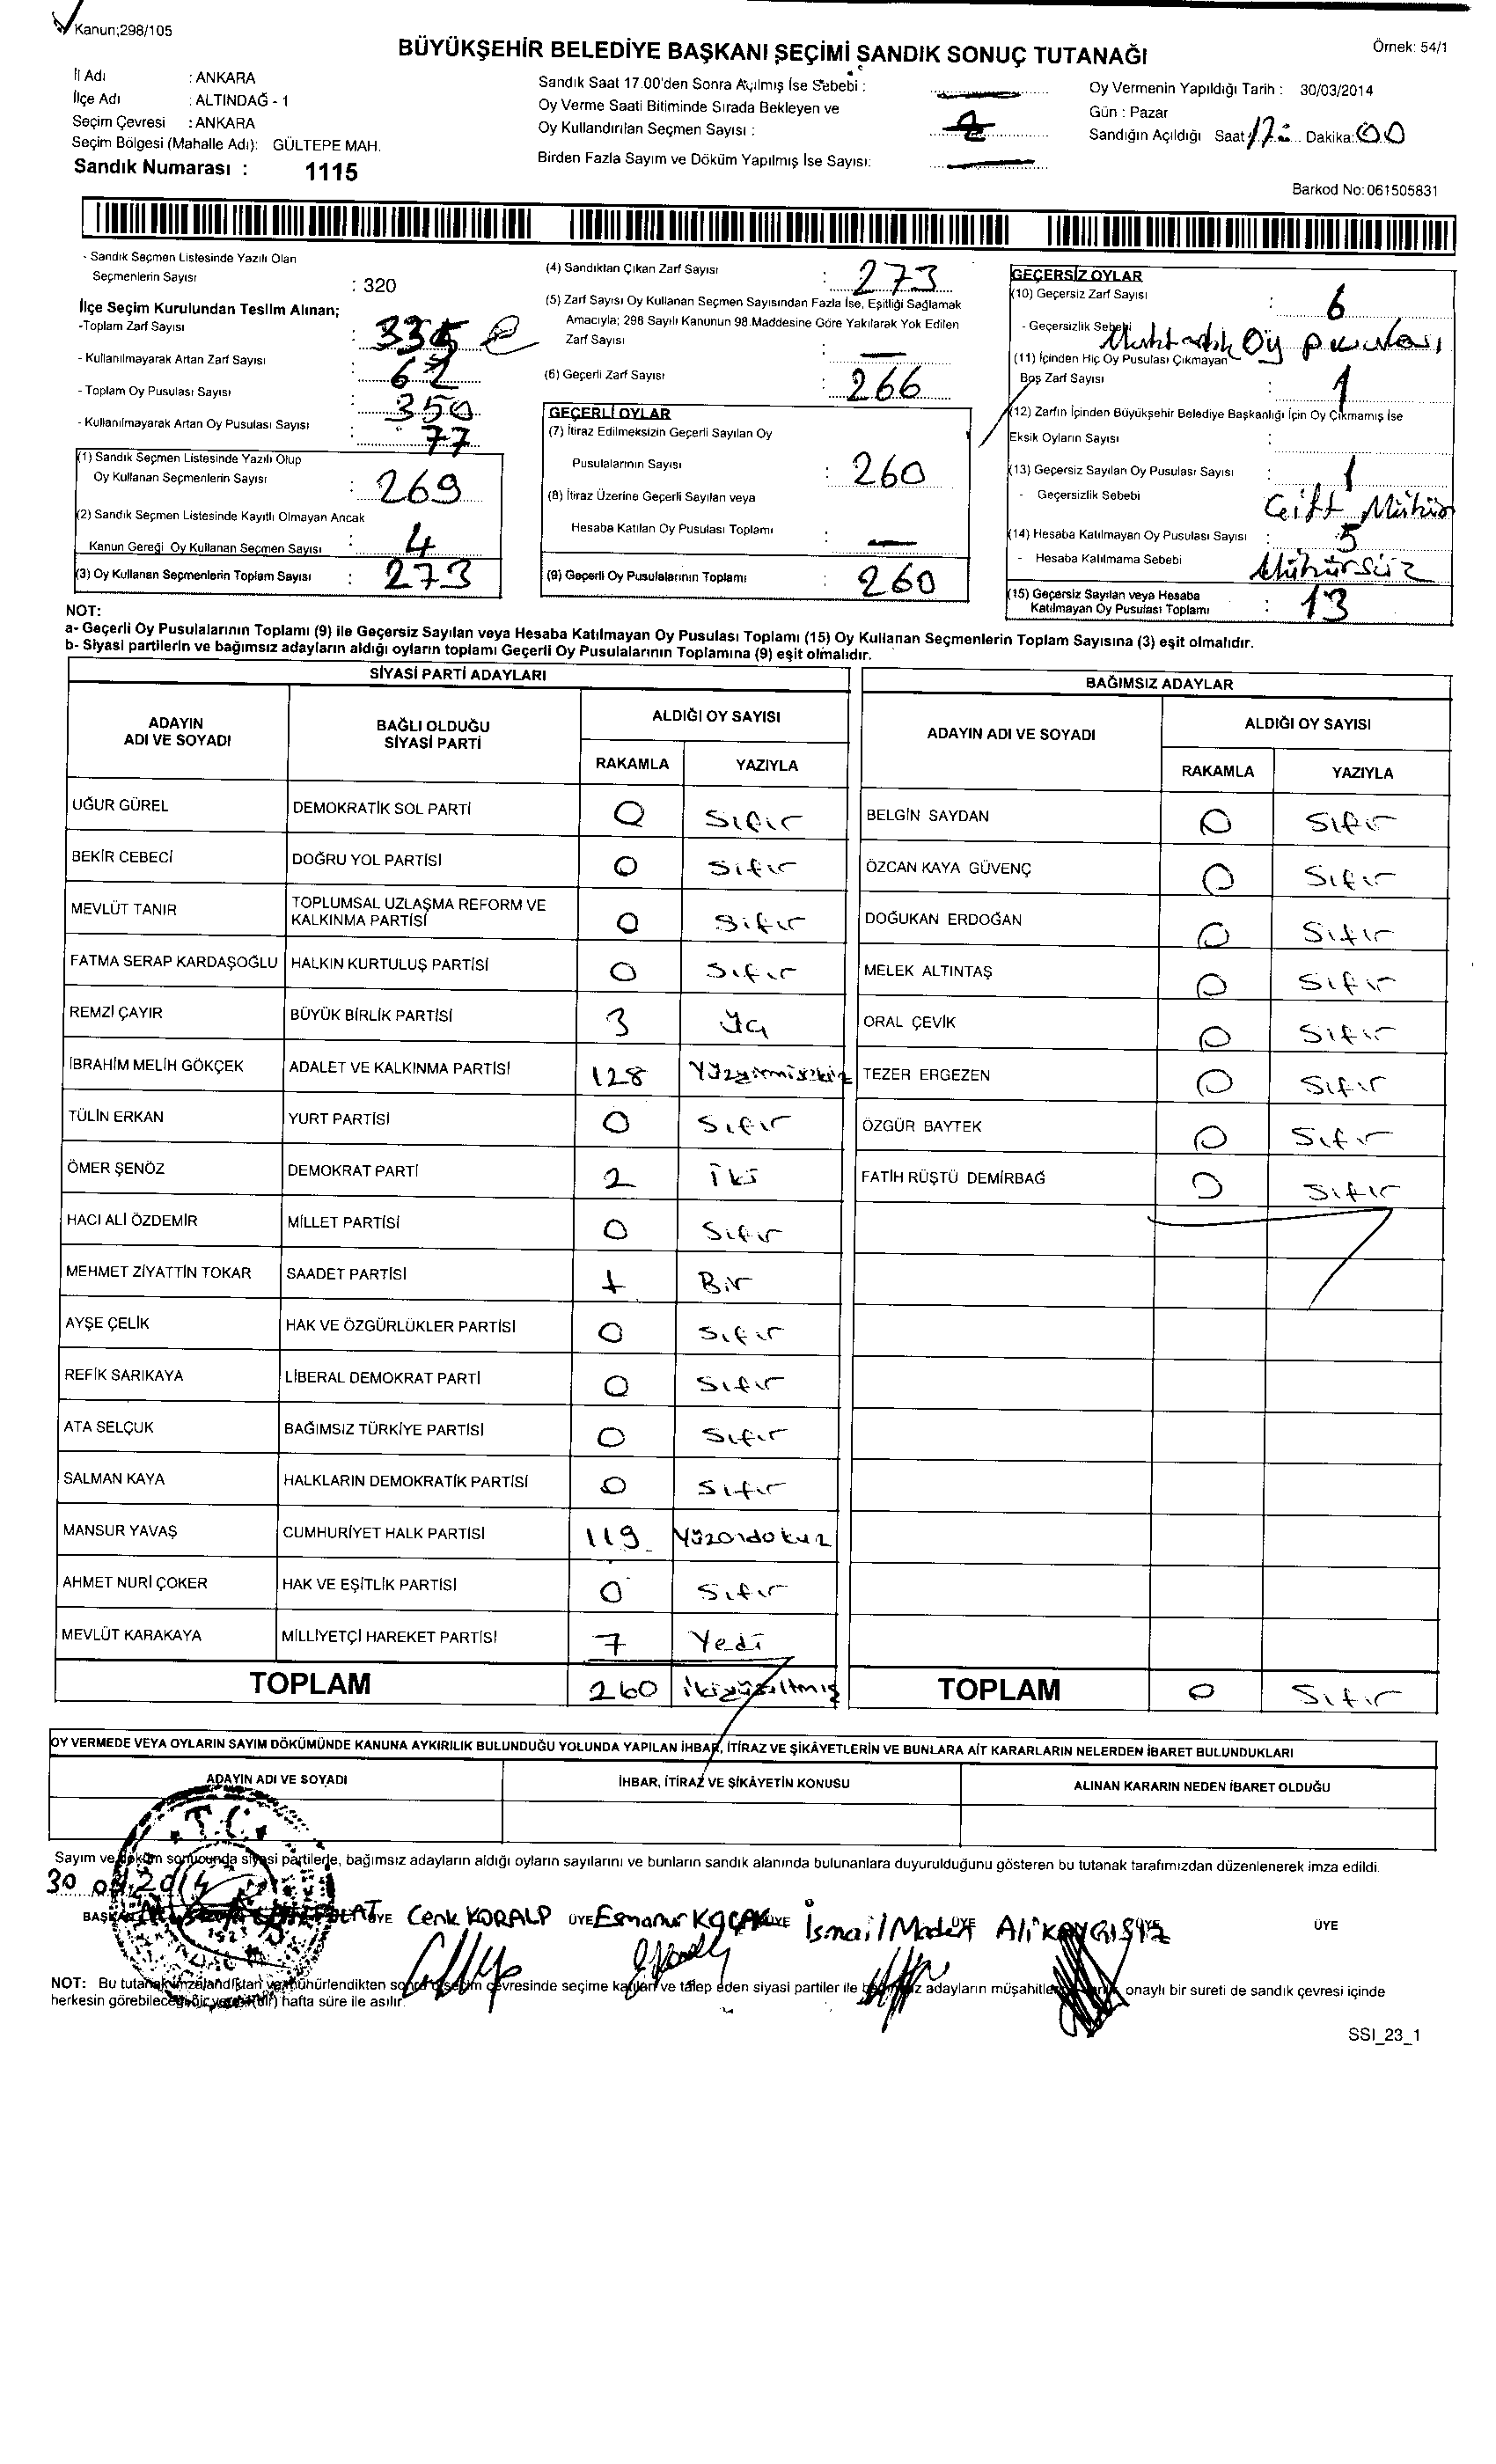 Kanun;298/105
BÜYÜKŞEHİR BELEDİYE BAŞKANI SEÇİMİ SANDIK SONUÇ TUTANAĞI
Örnek: 54/1
İl Adı : ANKARA
İlçe Adı : ALTINDAĞ - 1
Seçim Çevresi : ANKARA
Seçim Bölgesi (Mahalle Adı): GÜLTEPE MAH.
Sandık Numarası : 1115
Sandık Saat 17.00'den Sonra Açılmış İse Sebebi :
Oy Verme Saati Bitiminde Sırada Bekleyen ve
Oy Kullandırılan Seçmen Sayısı :
Birden Fazla Sayım ve Döküm Yapılmış İse Sayısı:
Oy Vermenin Yapıldığı Tarih : 30/03/2014
Gün : Pazar
Sandığın Açıldığı Saat Dakika: 00
Barkod No:061505831
- Sandık Seçmen Listesinde Yazılı Olan
Seçmenlerin Sayısı : 320
İlçe Seçim Kurulundan Teslim Alınan;
-Toplam Zarf Sayısı : 335
- Kullanılmayarak Artan Zarf Sayısı : 62
- Toplam Oy Pusulası Sayısı : 350
- Kullanılmayarak Artan Oy Pusulası Sayısı : 77
(1) Sandık Seçmen Listesinde Yazılı Olup
Oy Kullanan Seçmenlerin Sayısı : 269
(2) Sandık Seçmen Listesinde Kayıtlı Olmayan Ancak
Kanun Gereği Oy Kullanan Seçmen Sayısı : 4
(3) Oy Kullanan Seçmenlerin Toplam Sayısı : 273
(4) Sandıktan Çıkan Zarf Sayısı : 273
(5) Zarf Sayısı Oy Kullanan Seçmen Sayısından Fazla İse, Eşitliği Sağlamak
Amacıyla; 298 Sayılı Kanunun 98.Maddesine Göre Yakılarak Yok Edilen
Zarf Sayısı : —
(6) Geçerli Zarf Sayısı : 266
GEÇERLİ OYLAR
(7) İtiraz Edilmeksizin Geçerli Sayılan Oy
Pusulalarının Sayısı : 260
(8) İtiraz Üzerine Geçerli Sayılan veya
Hesaba Katılan Oy Pusulası Toplamı : —
(9) Geçerli Oy Pusulalarının Toplamı : 260
GEÇERSİZ OYLAR
(10) Geçersiz Zarf Sayısı : 6
- Geçersizlik Sebebi Muhtarlık Oy pusulası
(11) İçinden Hiç Oy Pusulası Çıkmayan
Boş Zarf Sayısı : 1
(12) Zarfın İçinden Büyükşehir Belediye Başkanlığı İçin Oy Çıkmamış İse
Eksik Oyların Sayısı :
(13) Geçersiz Sayılan Oy Pusulası Sayısı : 1
- Geçersizlik Sebebi Çift Mühür
(14) Hesaba Katılmayan Oy Pusulası Sayısı : 5
- Hesaba Katılmama Sebebi Mühürsüz
(15) Geçersiz Sayılan veya Hesaba
Katılmayan Oy Pusulası Toplamı : 13
NOT:
a- Geçerli Oy Pusulalarının Toplamı (9) ile Geçersiz Sayılan veya Hesaba Katılmayan Oy Pusulası Toplamı (15) Oy Kullanan Seçmenlerin Toplam Sayısına (3) eşit olmalıdır.
b- Siyasi partilerin ve bağımsız adayların aldığı oyların toplamı Geçerli Oy Pusulalarının Toplamına (9) eşit olmalıdır.
SİYASİ PARTİ ADAYLARI
ADAYIN ADI VE SOYADI
BAĞLI OLDUĞU SİYASİ PARTİ
ALDIĞI OY SAYISI
RAKAMLA YAZIYLA
UĞUR GÜREL DEMOKRATİK SOL PARTİ 0 Sıfır
BEKİR CEBECİ DOĞRU YOL PARTİSİ 0 Sıfır
MEVLÜT TANIR TOPLUMSAL UZLAŞMA REFORM VE KALKINMA PARTİSİ 0 Sıfır
FATMA SERAP KARDAŞOĞLU HALKIN KURTULUŞ PARTİSİ 0 Sıfır
REMZİ ÇAYIR BÜYÜK BİRLİK PARTİSİ 3 Üç
İBRAHİM MELİH GÖKÇEK ADALET VE KALKINMA PARTİSİ 128 Yüzyirmisekiz
TÜLİN ERKAN YURT PARTİSİ 0 Sıfır
ÖMER ŞENÖZ DEMOKRAT PARTİ 2 İki
HACI ALİ ÖZDEMİR MİLLET PARTİSİ 0 Sıfır
MEHMET ZİYATTİN TOKAR SAADET PARTİSİ 1 Bir
AYŞE ÇELİK HAK VE ÖZGÜRLÜKLER PARTİSİ 0 Sıfır
REFİK SARIKAYA LİBERAL DEMOKRAT PARTİ 0 Sıfır
ATA SELÇUK BAĞIMSIZ TÜRKİYE PARTİSİ 0 Sıfır
SALMAN KAYA HALKLARIN DEMOKRATİK PARTİSİ 0 Sıfır
MANSUR YAVAŞ CUMHURİYET HALK PARTİSİ 119 Yüzondokuz
AHMET NURİ ÇOKER HAK VE EŞİTLİK PARTİSİ 0 Sıfır
MEVLÜT KARAKAYA MİLLİYETÇİ HAREKET PARTİSİ 7 Yedi
TOPLAM 260 İkiyüzaltmış
BAĞIMSIZ ADAYLAR
ADAYIN ADI VE SOYADI
ALDIĞI OY SAYISI
RAKAMLA YAZIYLA
BELGİN SAYDAN 0 Sıfır
ÖZCAN KAYA GÜVENÇ 0 Sıfır
DOĞUKAN ERDOĞAN 0 Sıfır
MELEK ALTINTAŞ 0 Sıfır
ORAL ÇEVİK 0 Sıfır
TEZER ERGEZEN 0 Sıfır
ÖZGÜR BAYTEK 0 Sıfır
FATİH RÜŞTÜ DEMİRBAĞ 0 Sıfır
TOPLAM 0 Sıfır
OY VERMEDE VEYA OYLARIN SAYIM DÖKÜMÜNDE KANUNA AYKIRILIK BULUNDUĞU YOLUNDA YAPILAN İHBAR, İTİRAZ VE ŞİKÂYETLERİN VE BUNLARA AİT KARARLARIN NELERDEN İBARET BULUNDUKLARI
ADAYIN ADI VE SOYADI
İHBAR, İTİRAZ VE ŞİKÂYETİN KONUSU
ALINAN KARARIN NEDEN İBARET OLDUĞU
T.C.
Sayım ve döküm sonucunda siyasi partilerle, bağımsız adayların aldığı oyların sayılarını ve bunların sandık alanında bulunanlara duyurulduğunu gösteren bu tutanak tarafımızdan düzenlenerek imza edildi.
30 03 2014
BAŞKAN ÜYE Cenk KORALP ÜYE Esmanur KOÇAK ÜYE İsmail Maden ÜYE Ali KAYGISIZ ÜYE ÜYE
NOT: Bu tutanak imzalandıktan ve mühürlendikten sonra o seçim çevresinde seçime katılan ve talep eden siyasi partiler ile bağımsız adayların müşahitlerine onaylı bir sureti de sandık çevresi içinde
herkesin görebileceği bir yere (bir) hafta süre ile asılır.
SSI_23_1